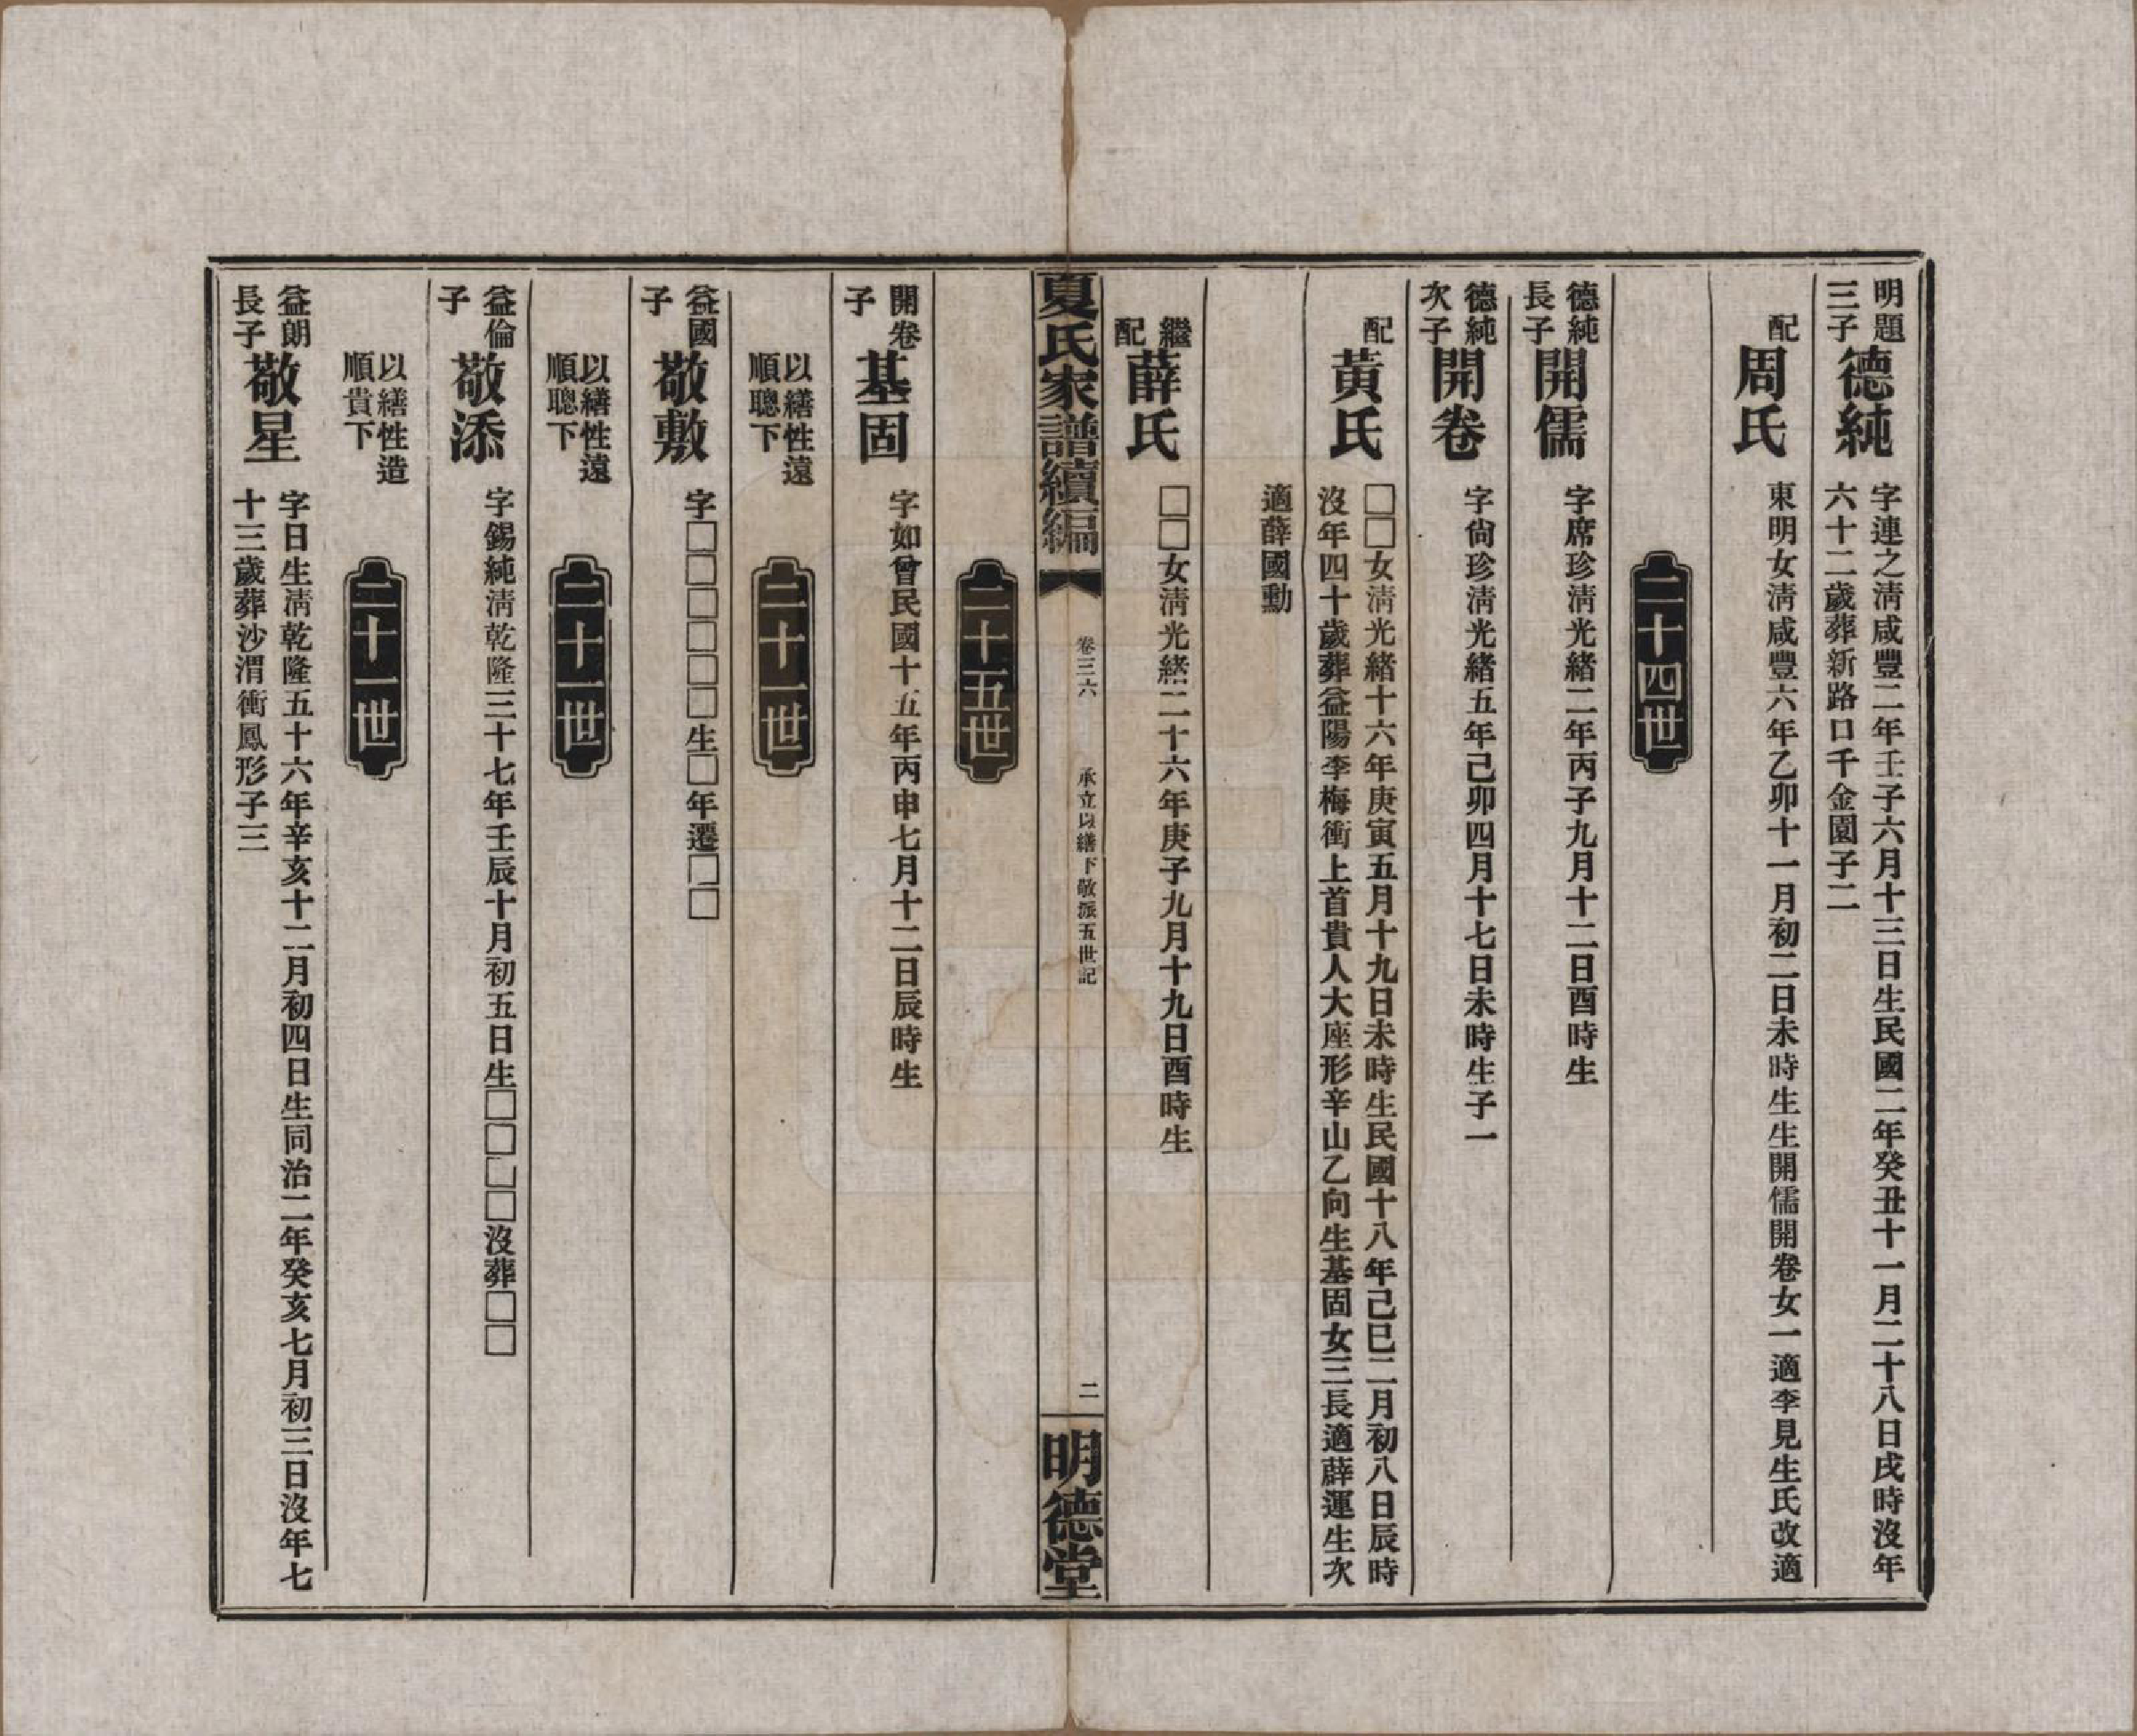 明題
三子
德純
字連之淸咸豐二年壬子六月十三日生民國二年癸丑十一月二十八日戌時沒年
六十二歲葬新路口千金園子二
配
周氏
東明女淸咸豐六年乙卯十一月初二日未時生生開儒開卷女一適李見生氏改適
二十四世
德純
長子
開儒
字席珍淸光緒二年丙子九月十二日酉時生
德純
次子
開卷
字尙珍淸光緒五年己卯四月十七日未時生子一
配
黃氏
□□女淸光緒十六年庚寅五月十九日未時生民國十八年己巳二月初八日辰時
沒年四十歲葬益陽李梅衝上首貴人大座形辛山乙向生基固女三長適薛運生次
適薛國勳
繼
配
薛氏
□□女淸光緖二十六年庚子九月十九日酉時生
夏氏家譜續編
卷三六
承立以繕下敬派五世記
二
明德堂
二十五世
開卷
子
基固
字如曾民國十五年丙申七月十二日辰時生
以繕性遠
順聰下
二十一世
益國
子
敬敷
字□□□□□□生□年遷□□
以繕性遠
順聰下
二十一世
益倫
子
敬添
字錫純淸乾隆三十七年壬辰十月初五日生□□□□沒葬□□
以繕性造
順貴下
二十一世
益朗
長子
敬星
字日生淸乾隆五十六年辛亥十二月初四日生同治二年癸亥七月初三日沒年七
十三歲葬沙渭衝鳳形子三